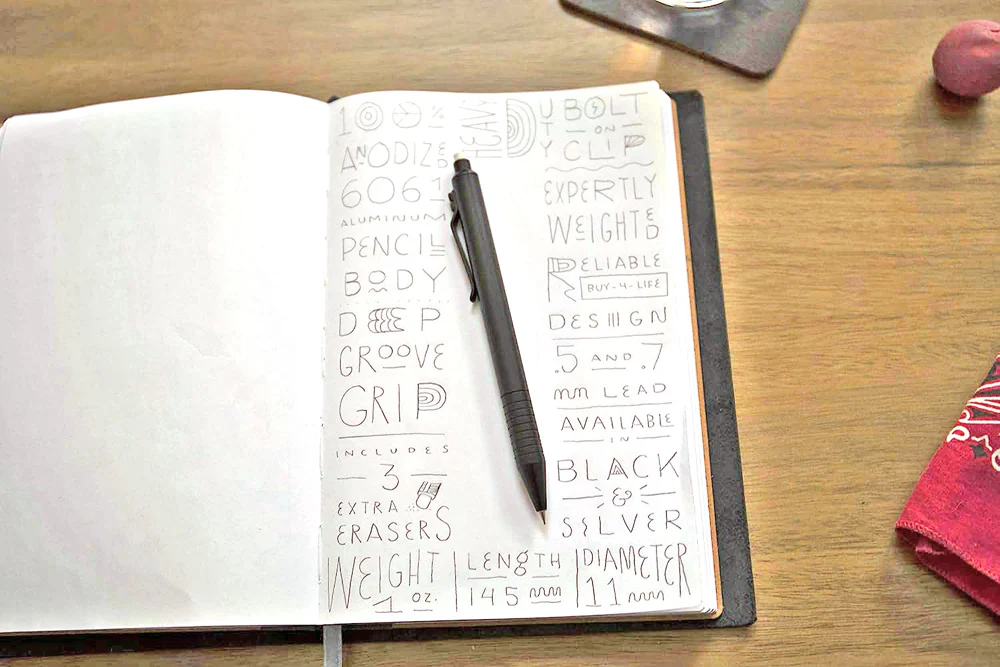 100%
ANODIZED
6061
ALUMINUM
PENCIL
BODY
DEEP
GROOVE
GRIP
INCLUDES
3
EXTRA
ERASERS
HEAVY DUTY
BOLT
ON
CLIP
EXPERTLY
WEIGHTED
RELIABLE
BUY-4-LIFE
DESIGN
.5 AND .7
mm LEAD
AVAILABLE
IN
BLACK
&
SILVER
WEIGHT
1 oz.
LENGTH
145 mm
DIAMETER
11 mm